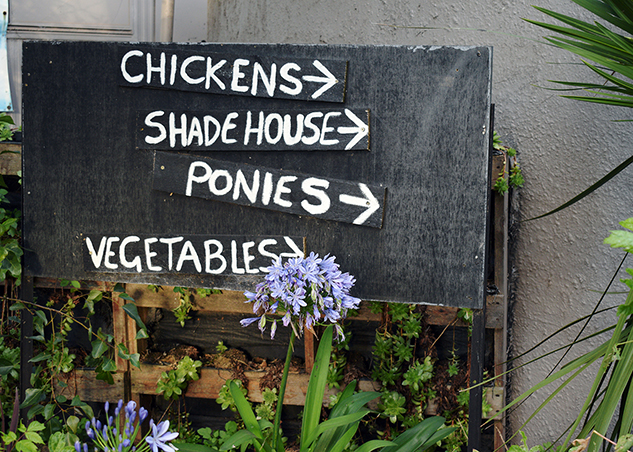 CHICKENS →
SHADE HOUSE →
PONIES →
VEGETABLES →